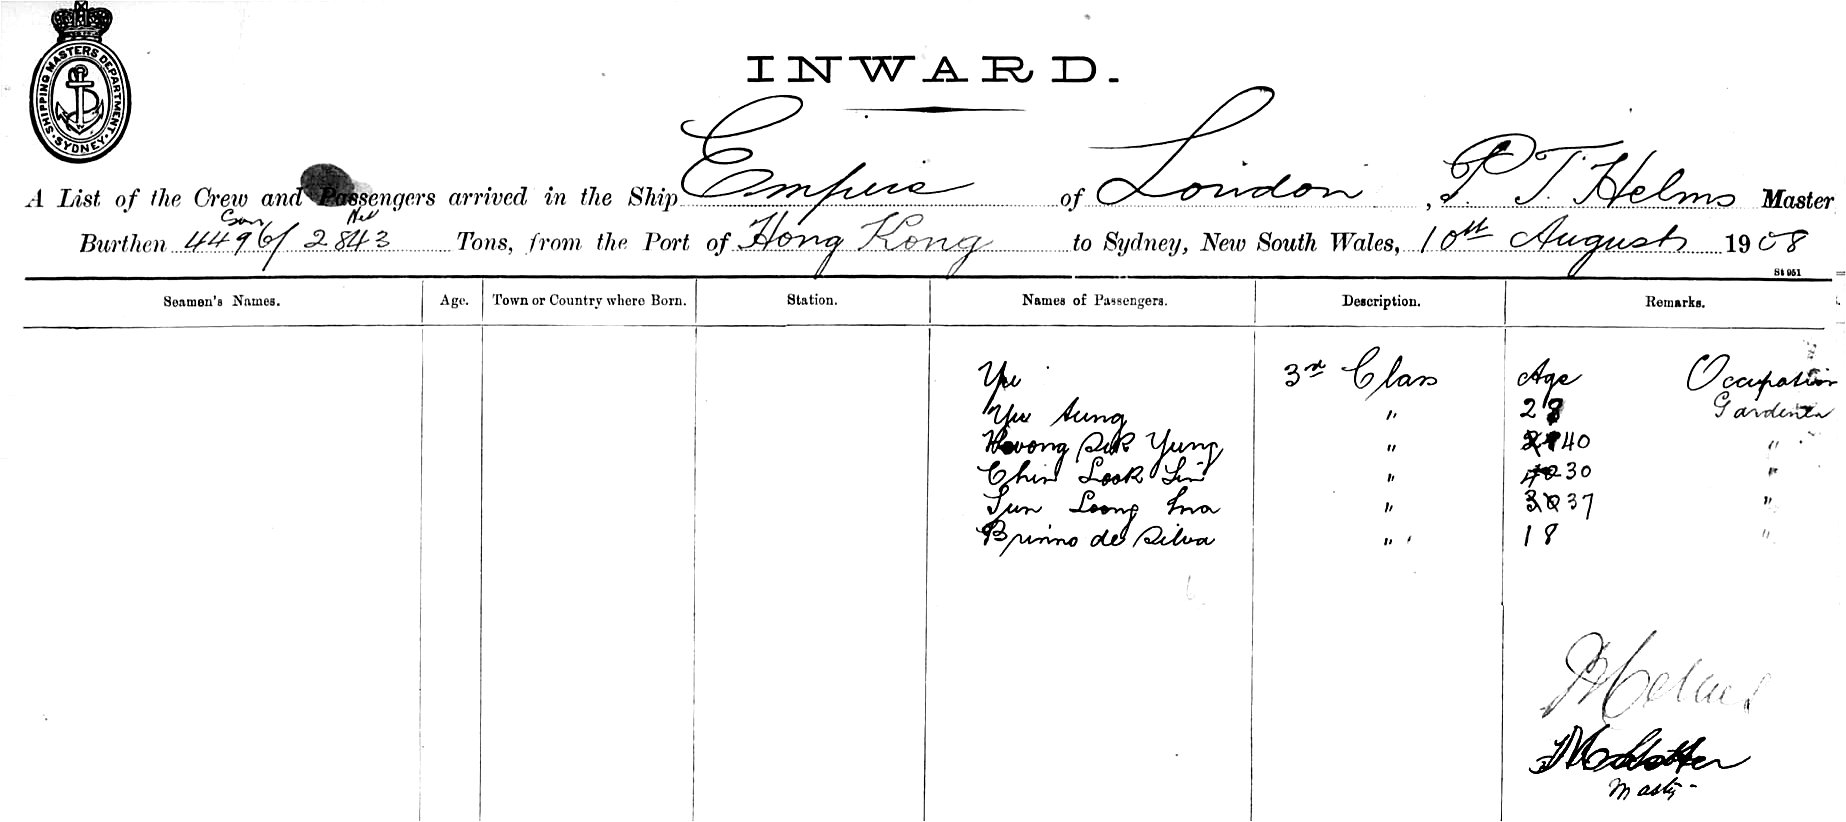 SHIPPING MASTERS DEPARTMENT. SYDNEY
INWARD.
A List of the Crew and Passengers arrived in the Ship Empire of London, P. T. Helms Master
Burthen 4496/ 2843 Tons, from the Port of Hong Kong to Sydney, New South Wales, 10th August 1908
St 951
Seamen's Names. Age. Town or Country where Born. Station. Names of Passengers. Description. Remarks.
Yee 3rd Class Age Occupation
Yee Aung " 28 Gardener
Kwong Sik Yung " 40 "
Chin Look Lin " 30 "
Sun Loong " 37 "
Brinno de Silva " 18 "
Helms